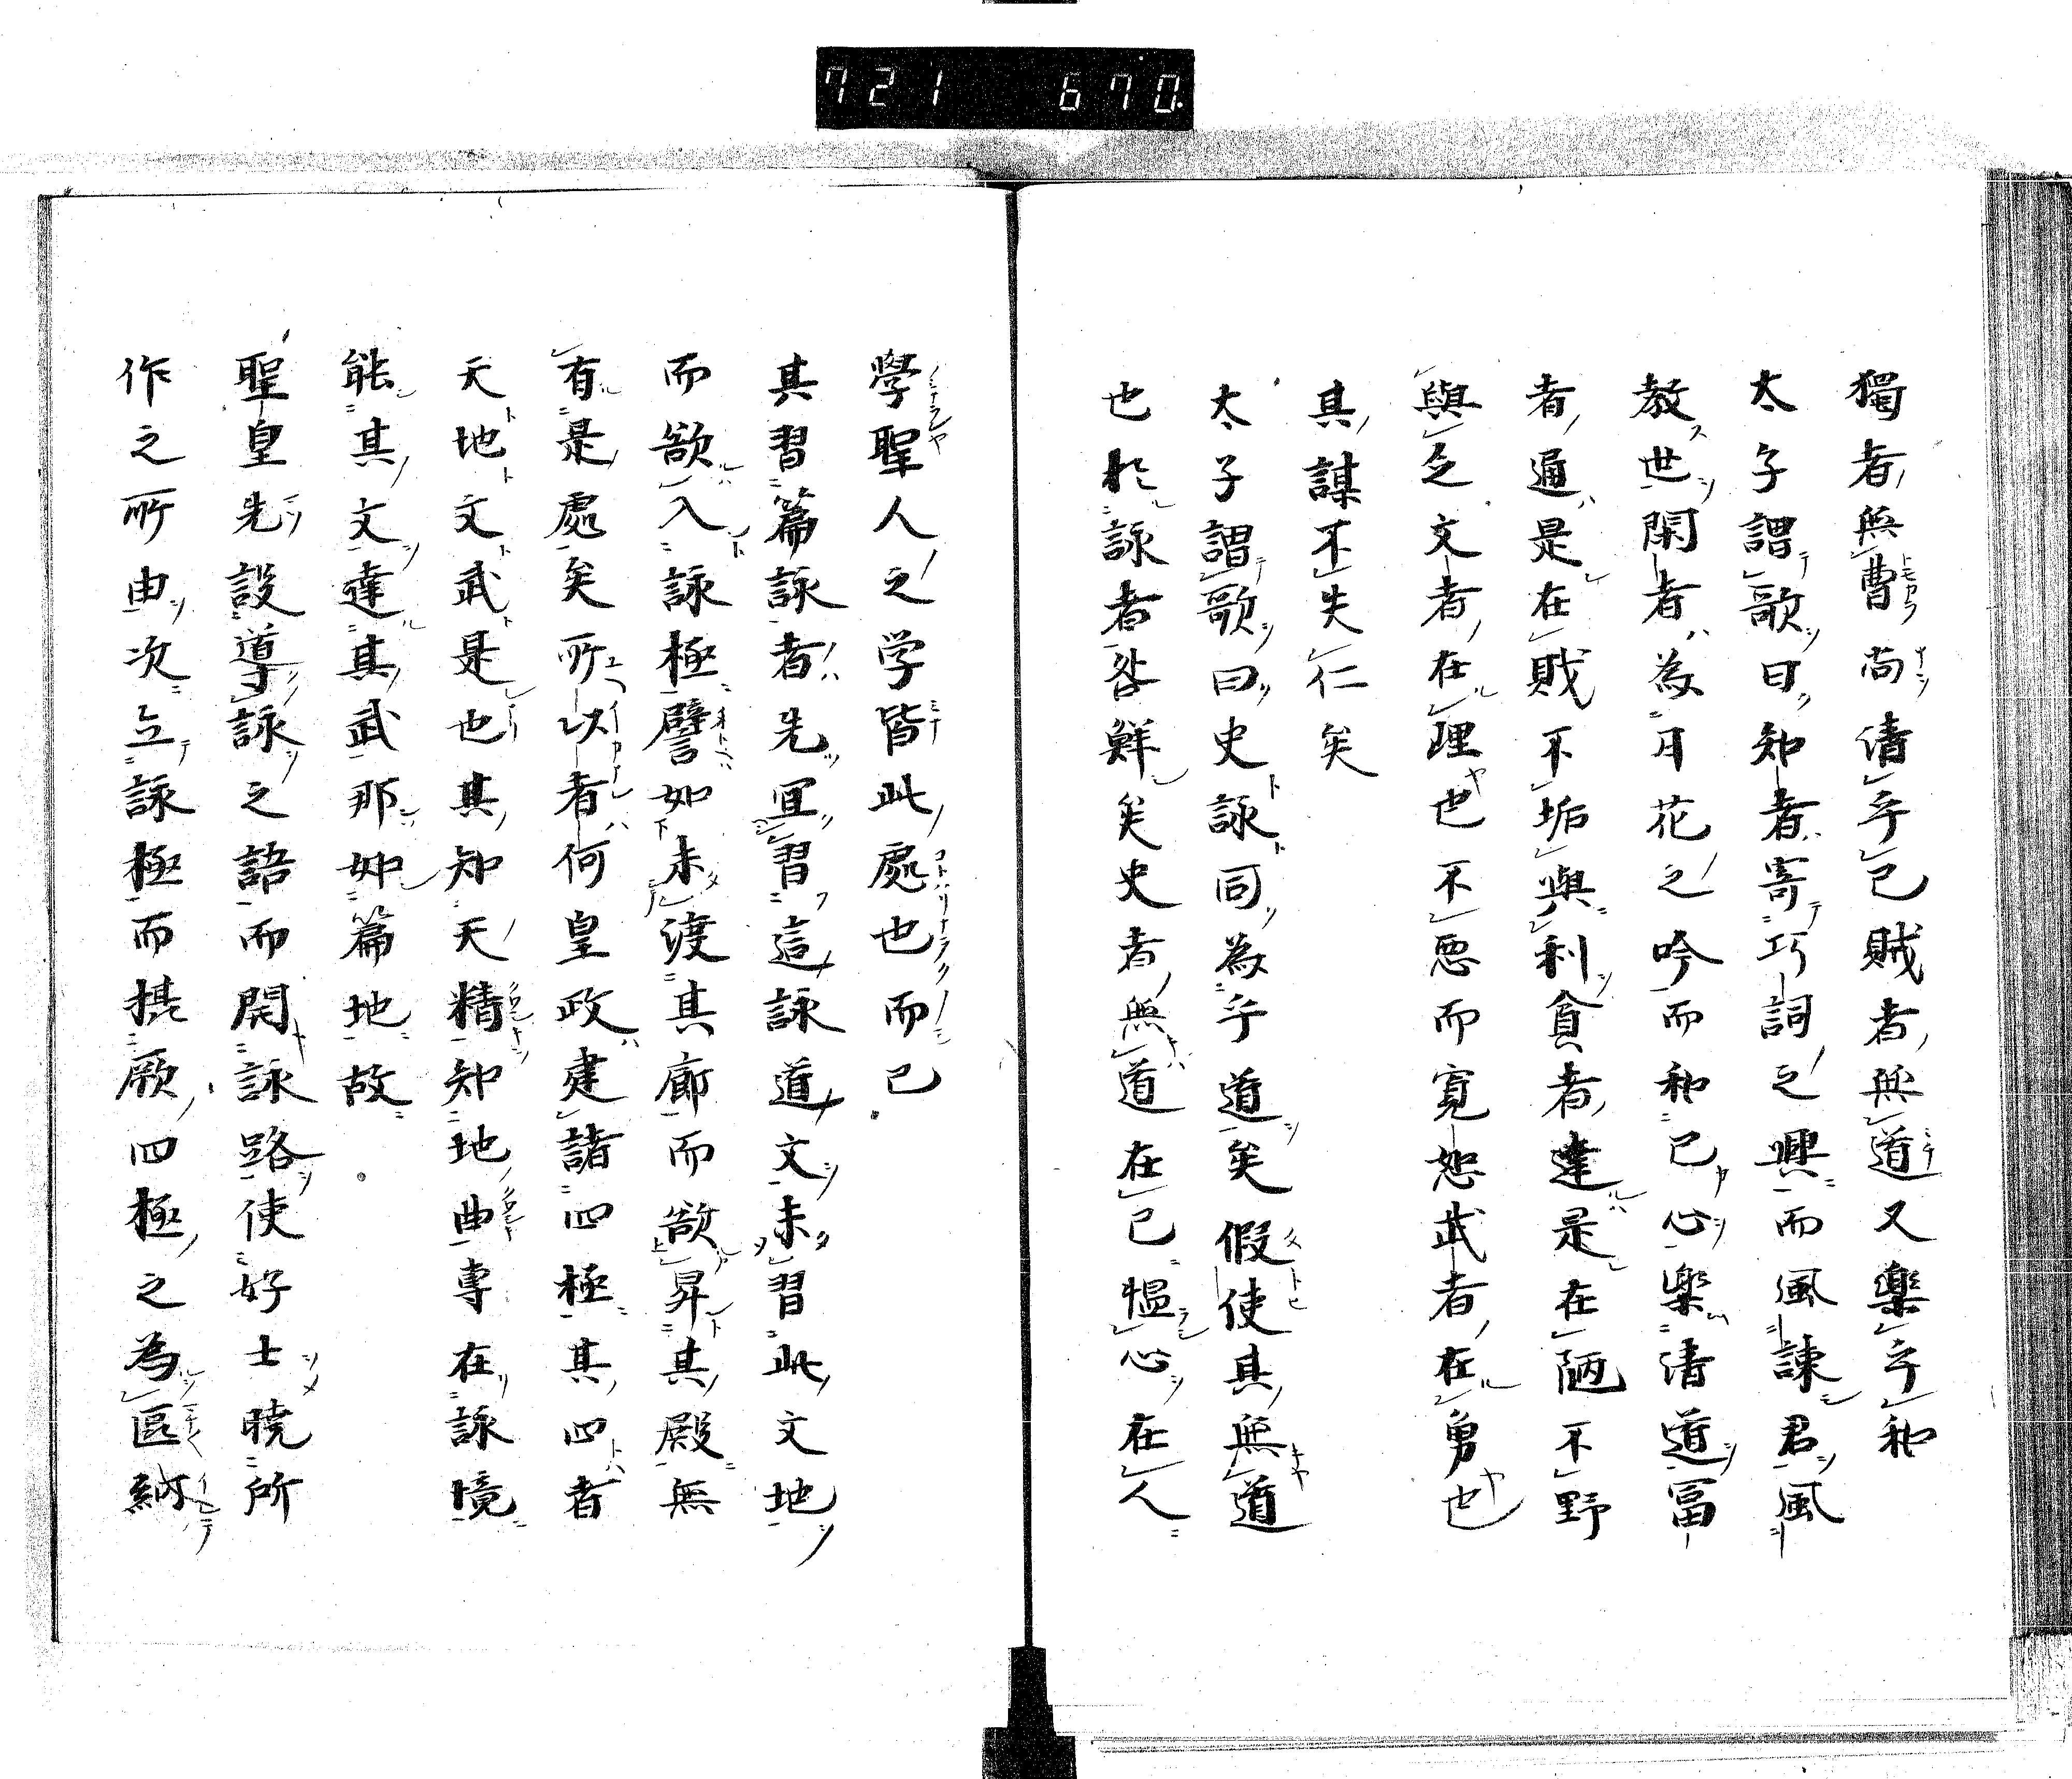 721 670.
獨者無曹尚清乎己賊者無道又樂乎和
太子謂歌曰知者寄巧詞之興而風諫君風
教世閑者為月花之吟而和己心樂清道富
者通是在賎不垢與利貪者達是在陋不野
與之文者在理也不悪而寛恕武者在勇也
其謀不失仁矣
太子謂歌曰史詠同為乎道矣假使其無道
也於詠者咎鮮矣史者無道在己愠心在人
學聖人之学皆此處也而已
其習篇詠者先宜習這詠道文未習此文地
而欲入詠極譬如未渡其廊而欲昇其殿無
有是處矣所以者何皇政建諸四極其四者
天地文武是也其知天精知地曲專在詠境
能其文達其武那如篇地故
聖皇先設導詠之語而開詠路使好士暁所
作之所由次立詠極而摸厥四極之為區納